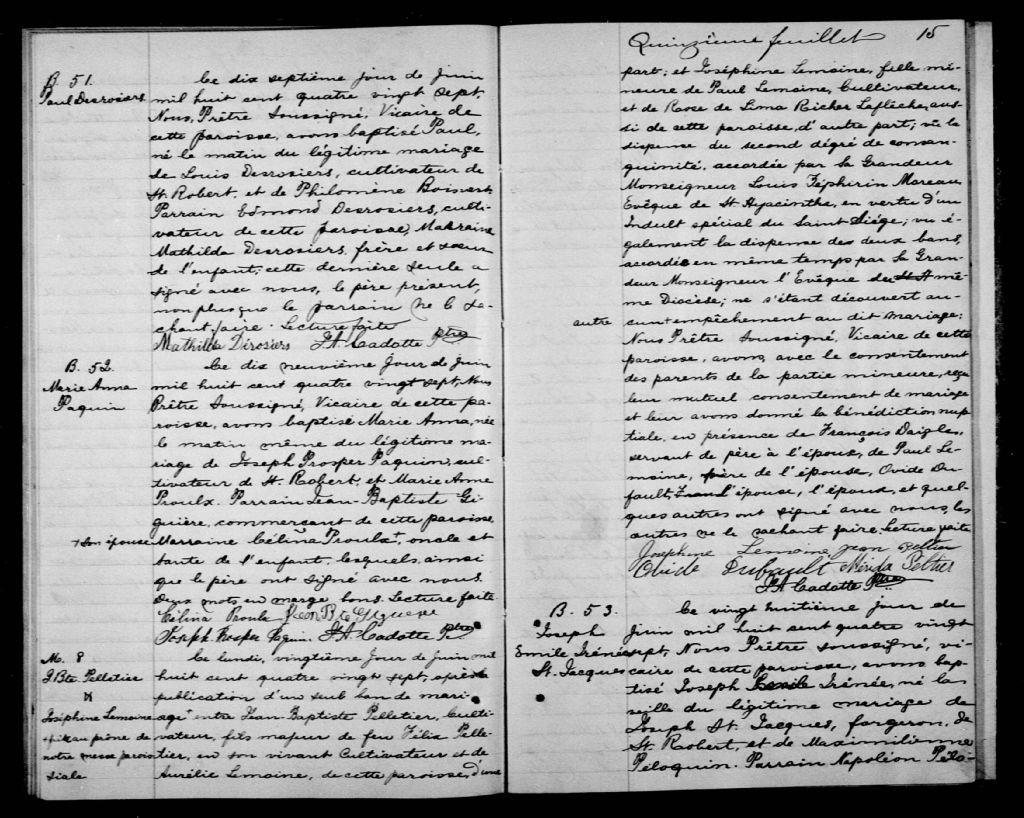 B. 51.
Paul Desrosiers
Ce dix septième jour de Juin
mil huit cent quatre vingt sept,
Nous, Prêtre Soussigné, Vicaire de
cette paroisse, avons baptisé Paul,
né le matin du légitime mariage
de Louis Desrosiers, cultivateur de
St. Robert, et de Philomène Boisvert
Parrain Edmond Desrosiers, culti-
vateur de cette paroisse, Marraine
Mathilda Desrosiers, frère et soeur
de l'enfant; cette dernière seule a
signé avec nous, le père présent,
non plus que le parrain ne le sa-
chant faire. Lecture faite
Mathilda Dirosiers J.A. Cadotte Ptre
B. 52.
Marie Anna
Paquin
Ce dix neuvième Jour de Juin
mil huit cent quatre vingt sept, Nous
Prêtre Soussigné, Vicaire de cette pa-
roisse, avons baptisé Marie Anna, née
le matin même du légitime ma-
riage de Joseph Prosper Paquin, cul-
tivateur de St Robert, et Marie Anne
Proulx. Parrain Jean-Baptiste Gi-
guière, commerçant de cette paroisse,
+ Son épouse
Marraine Célina Proulx+, oncle et
tante de l'enfant, lesquels, ainsi
que le père ont signé avec nous.
Deux mots en marge bons. Lecture faite
Célina Proula Jean Bte Giguere
Joseph Prosper Paquin J.A. Cadotte Ptre
M. 8
J Bte Pelletier
&
Joséphine Lemoine
+ fait au prône de
notre messe parois-
siale
Ce lundi, vingtième Jour de Juin mil
huit cent quatre vingt sept, après la
publication d'un seul ban de mari-
age+ entre Jean-Baptiste Pelletier, Culti-
vateur, fils majeur de feu Félix Pelle-
tier, en son vivant Cultivateur et de
Aurélie Lemoine, de cette paroisse, d'une
Quinzième feuillet 15
part; et Joséphine Lemoine, fille mi-
neure de Paul Lemoine, Cultivateur,
et de Rose de Lima Richer Laflèche, aus-
si de cette paroisse, d'autre part; vu la
dispense du second dégré de consan-
guinité, accordée par Sa Grandeur
Monseigneur Louis Zéphirin Moreau,
Evêque de St Hyacinthe, en vertu d'un
Indult spécial du Saint Siége; vu é-
galement la dispense des deux bans,
accordée en même temps par Sa Gran-
deur Monseigneur l'Evêque du mê-
me Diocèse; ne s'étant découvert au-
autre
cun+ empêchement au dit mariage;
Nous Prêtre Soussigné, Vicaire de cette
paroisse, avons, avec le consentement
des parents de la partie mineure, reçu
leur mutuel consentement de mariage
et leur avons donné la bénédiction nup-
tiale, en présence de François Daigle,
servant de père à l'époux, de Paul Le-
moine, père de l'épouse, Ovide Du-
fault, l'épouse, l'époux, et quel-
ques autres ont signé avec nous, les
autres ne le sachant faire. Lecture faite
Josephine Lemoine Jean Peltier
Ovide Dufault Mérida Peltier
J.A. Cadotte Ptre
B. 53.
Joseph
Emile Irénée
St. Jacques
Ce vingt huitième Jour de
Juin mil huit cent quatre vingt
sept, Nous Prêtre soussigné, vi-
caire de cette paroisse, avons bap-
tisé Joseph Emile Irénée, né la
veille du légitime mariage de
Joseph St. Jacques, forgeron, de
St. Robert, et de Maximilienne
Péloquin. Parrain Napoléon Pélo-